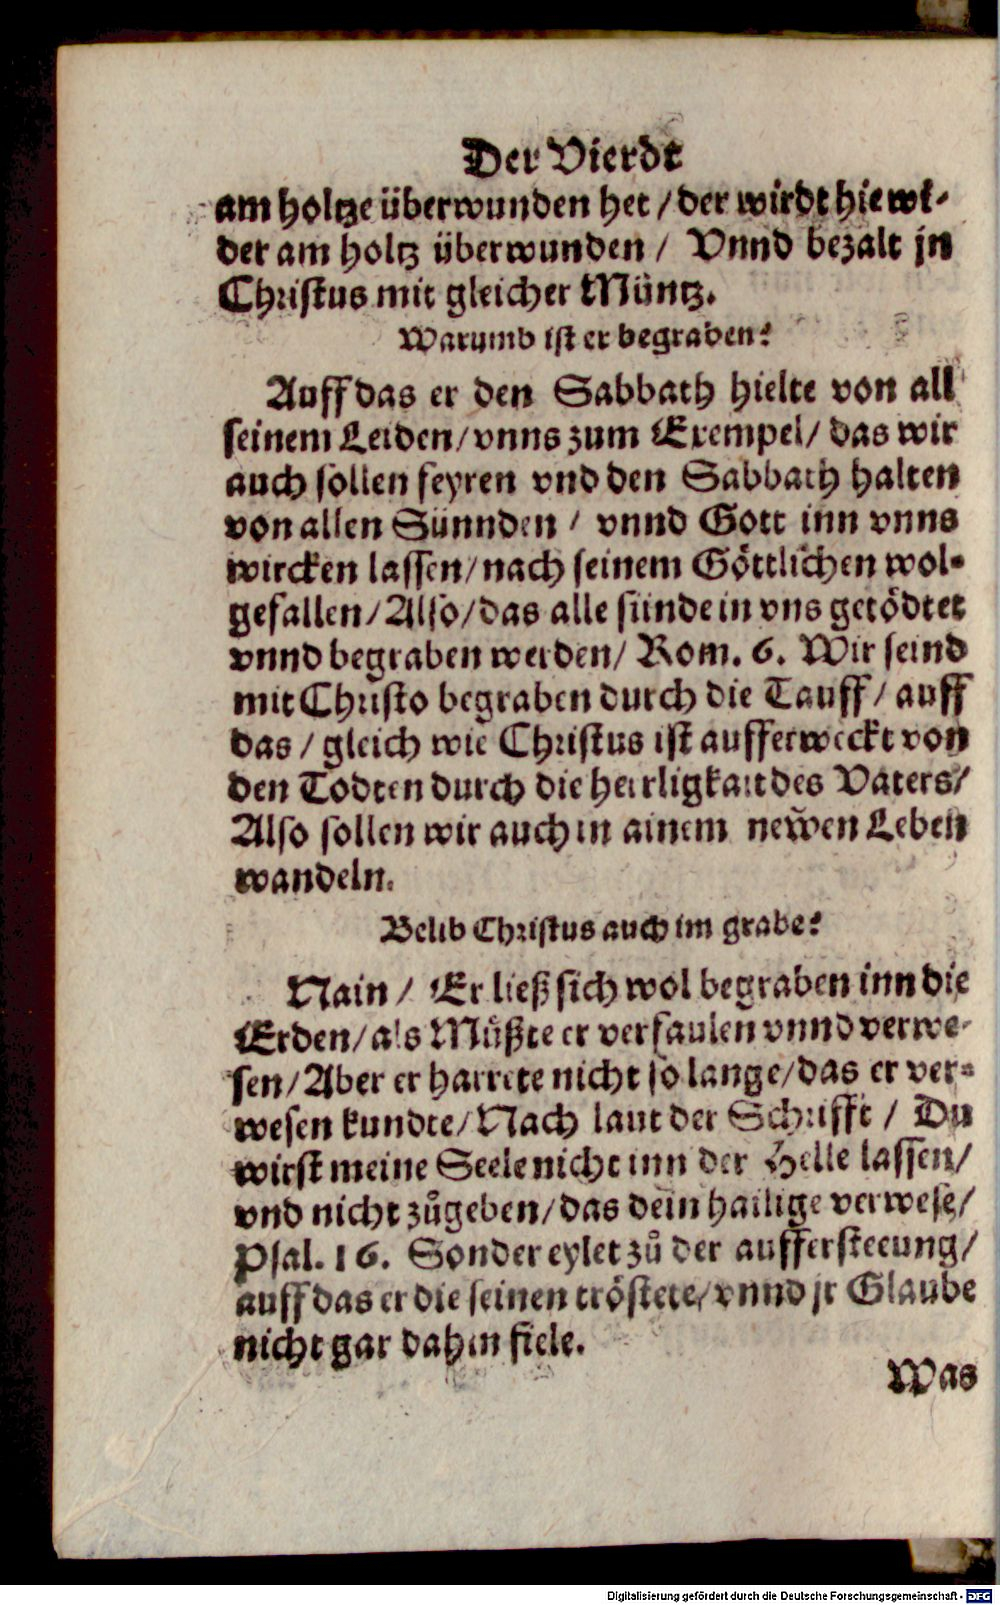 Der Vierdt
am holtze überwunden het / der wirdt hie wi-
der am holtz überwunden / Vnnd bezalt jn
Christus mit gleicher Müntz.
Warumb ist er begraben?
Auff das er den Sabbath hielte von all
seinem Leiden / vnns zum Exempel / das wir
auch sollen feyren vnd den Sabbath halten
von allen Sünnden / vnnd Gott inn vnns
wircken lassen / nach seinem Göttlichen wol-
gefallen / Also / das alle sünde in vns getödtet
vnnd begraben werden / Rom. 6. Wir seind
mit Christo begraben durch die Tauff / auff
das / gleich wie Christus ist aufferweckt von
den Todten durch die herrligkait des Vaters /
Also sollen wir auch in ainem newen Leben
wandeln.
Belib Christus auch im grabe?
Nain / Er ließ sich wol begraben inn die
Erden / als Müßte er verfaulen vnnd verwe-
sen / Aber er harrete nicht so lange / das er ver-
wesen kundte / Nach laut der Schrifft / Du
wirst meine Seele nicht inn der Helle lassen /
vnd nicht zůgeben / das dein hailige verwese /
Psal. 16. Sonder eylet zů der auffersteeung /
auff das er die seinen tröstete / vnnd jr Glaube
nicht gar dahin fiele.
Was
Digitalisierung gefördert durch die Deutsche Forschungsgemeinschaft - DFG